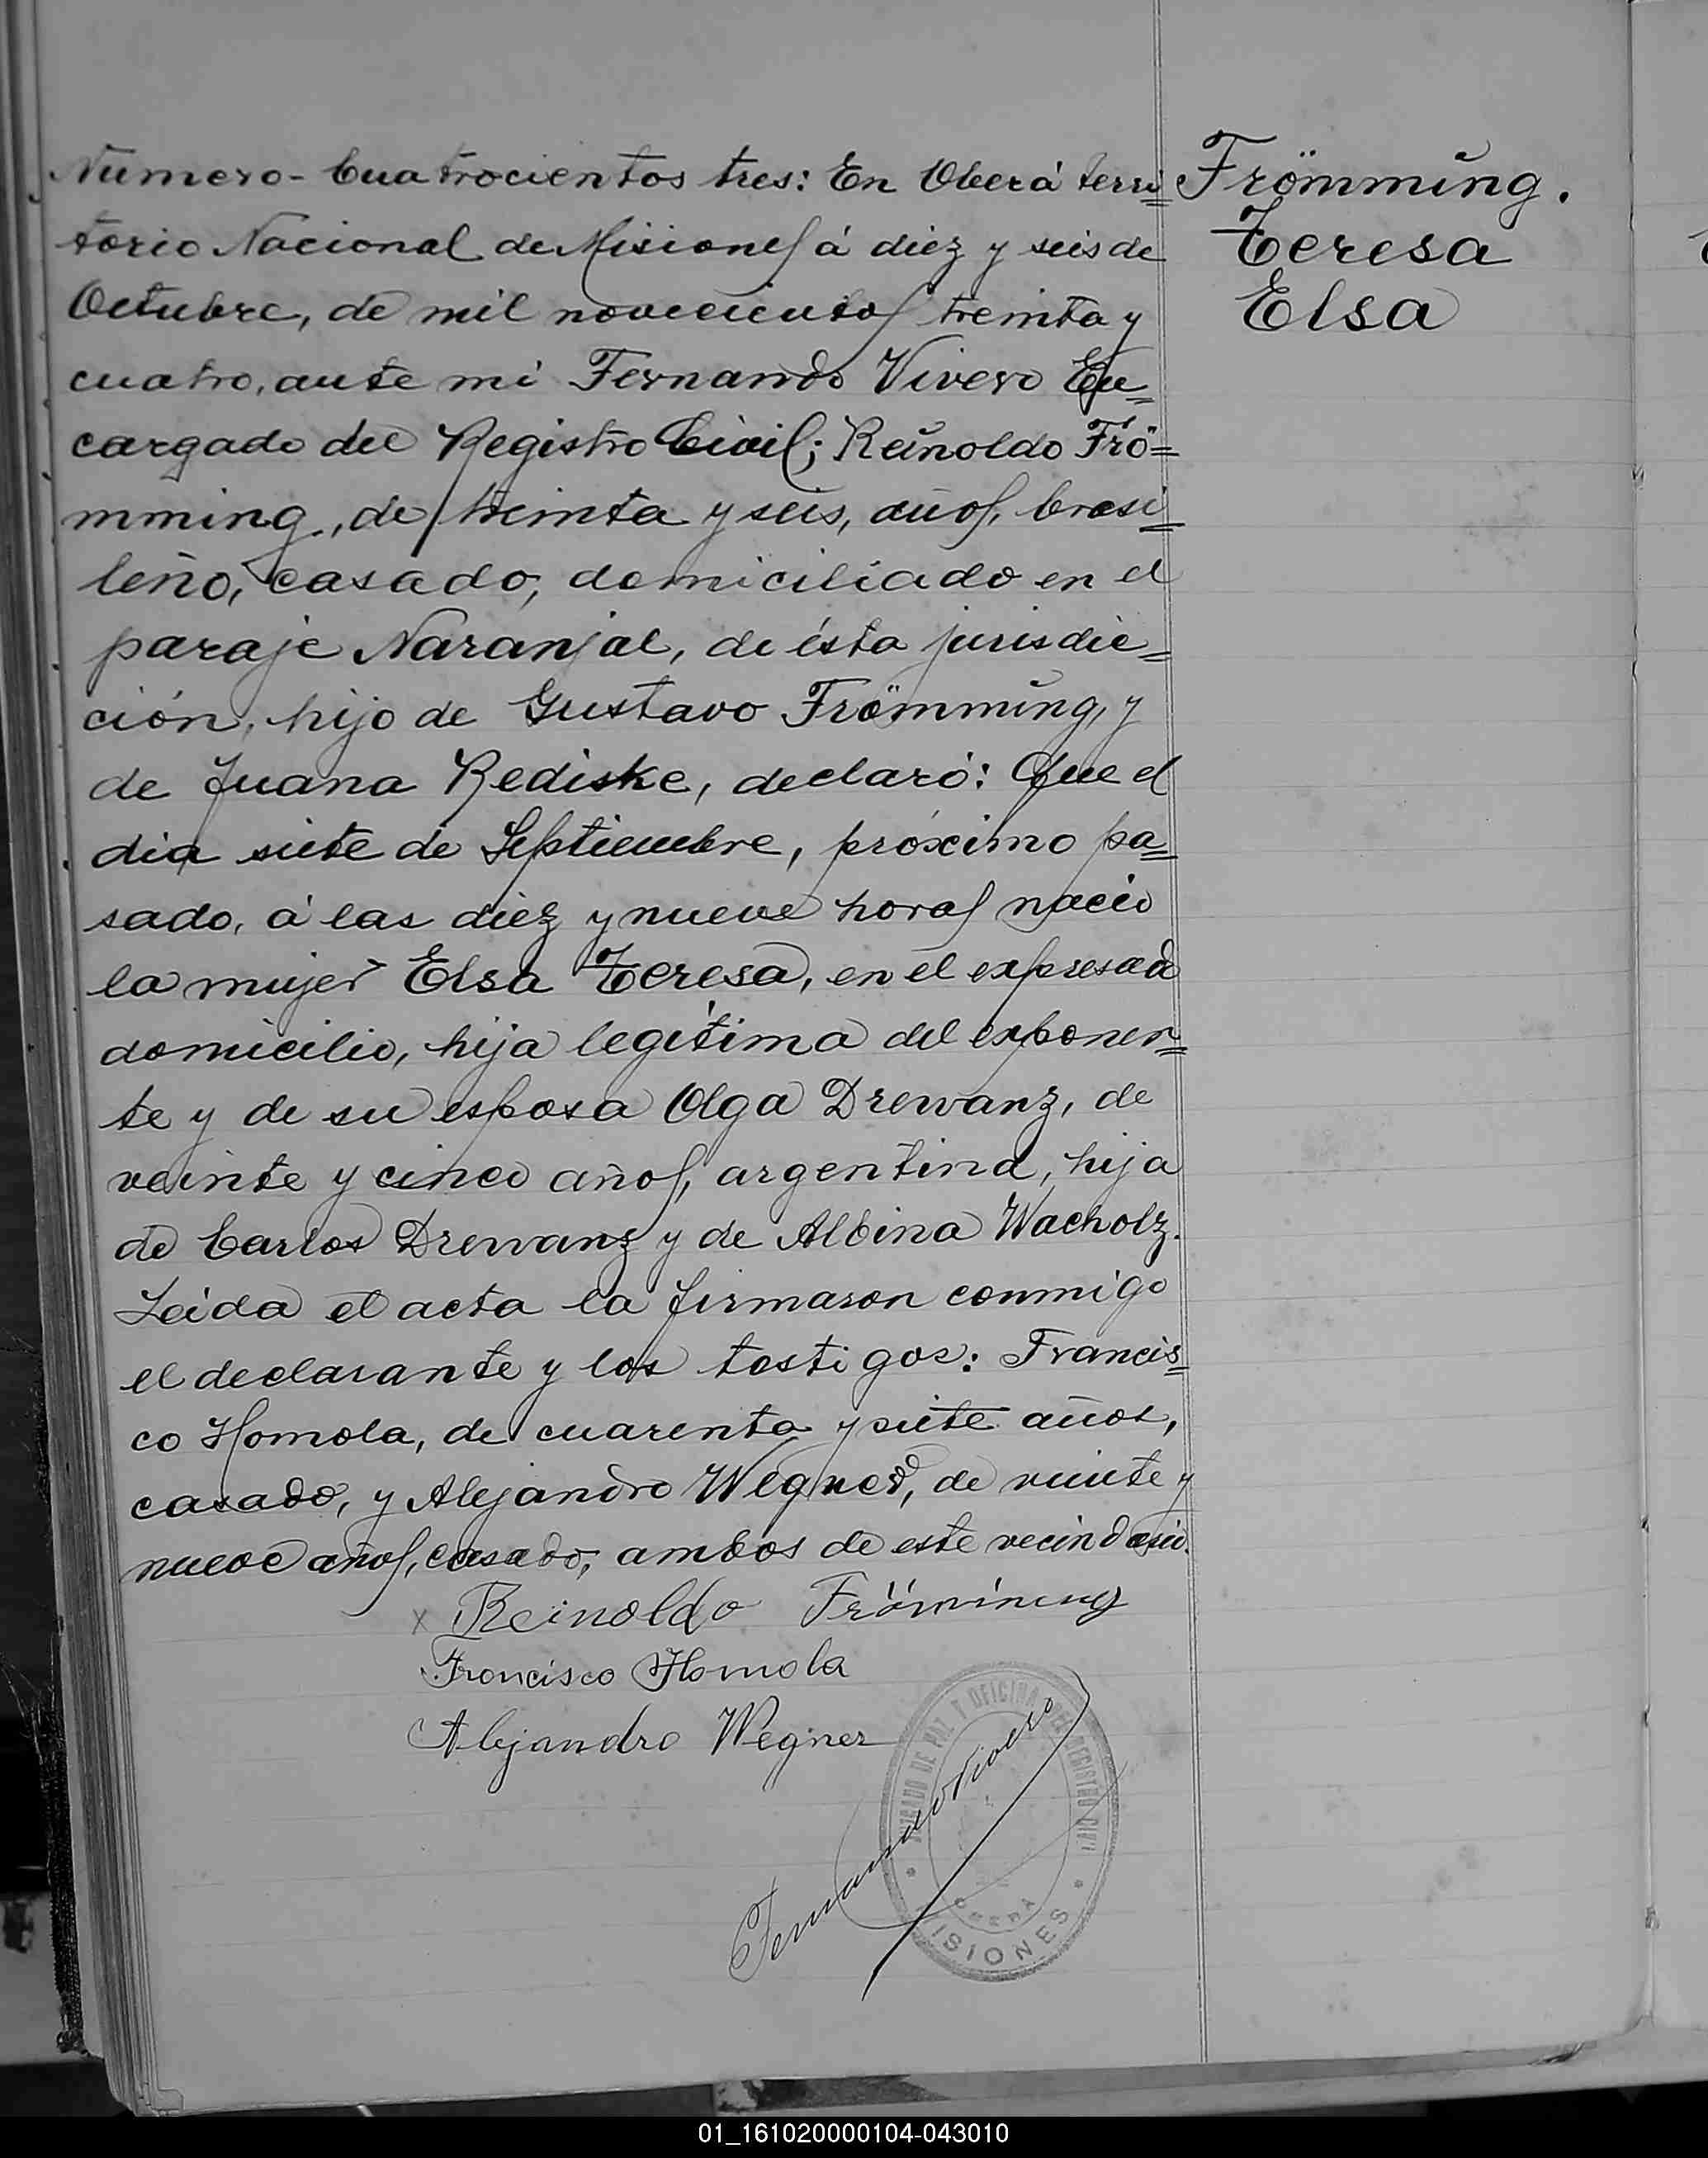 Número - Cuatrocientos tres: En Oberá terri=
torio Nacional de Misiones á diez y seis de
Octubre, de mil novecientos treinta y
cuatro, ante mi Fernando Vivero En=
cargado del Registro Civil; Reinoldo Frö=
mming, de treinta y seis, años, brasi=
leño, casado, domiciliado en el
paraje Naranjal, de ésta jurisdic=
ción, hijo de Gustavo Frömming, y
de Juana Rediske, declaró: Que el
dia siete de Septiembre, próximo pa=
sado, á las diez y nueve horas nació
la mujer Elsa Teresa, en el expresado
domicilio, hija legítima del exponen=
te y de su esposa Olga Drewanz, de
veinte y cinco años, argentina, hija
de Carlos Drewanz y de Albina Wacholz.
Leida el acta la firmaron conmigo
el declarante y los testigos: Francis=
co Homola, de cuarenta y siete años,
casado, y Alejandro Wegner, de veinte y
nueve años, casado, ambos de este vecindario.
x Reinoldo Frömming
Francisco Homola
Alejandro Wegner
Fernando Vivero
JUZGADO DE PAZ Y OFICINA DEL REGISTRO CIVIL
OBERA
MISIONES
Frömming.
Teresa
Elsa
01_161020000104-043010